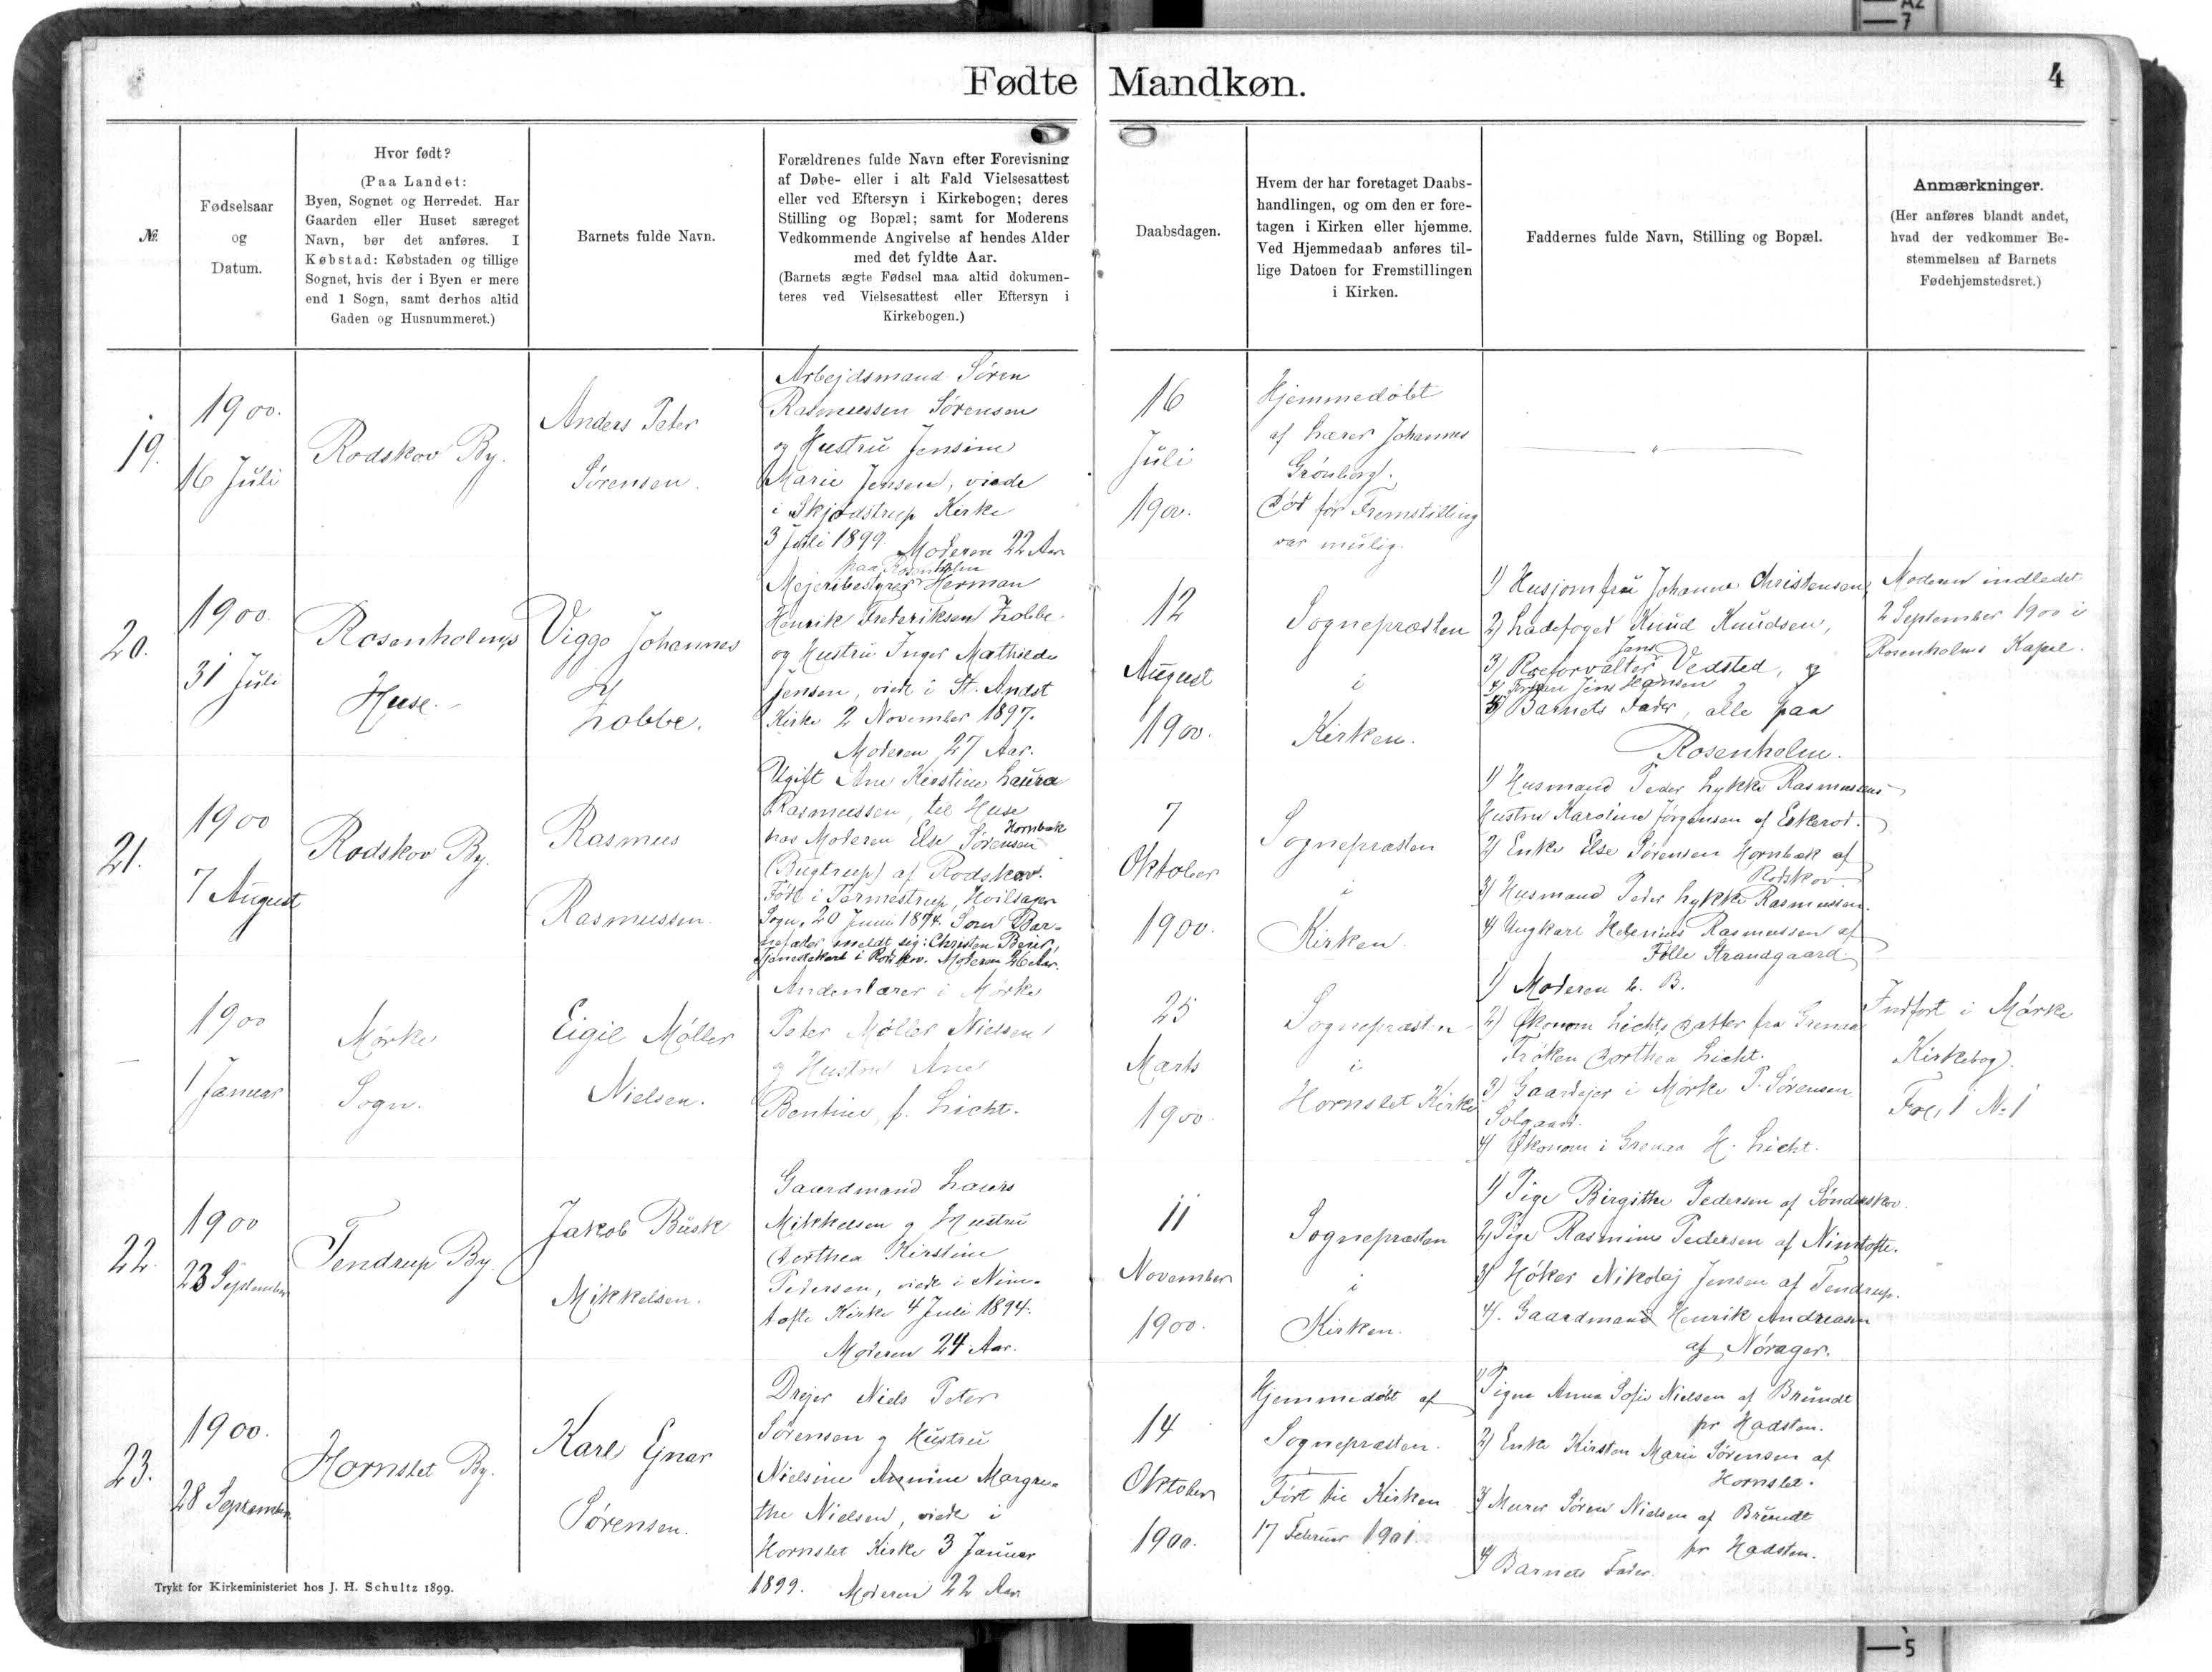 A2
7
Fødte Mandkøn.
4
№.
Fødselsaar
og
Datum.
Hvor født?
(Paa Landet:
Byen, Sognet og Herredet. Har
Gaarden eller Huset særeget
Navn, bør det anføres. I
Købstad: Købstaden og tillige
Sognet, hvis der i Byen er mere
end 1 Sogn, samt derhos altid
Gaden og Husnummeret.)
Barnets fulde Navn.
Forældrenes fulde Navn efter Forevisning
af Døbe- eller i alt Fald Vielsesattest
eller ved Eftersyn i Kirkebogen; deres
Stilling og Bopæl; samt for Moderens
Vedkommende Angivelse af hendes Alder
med det fyldte Aar.
(Barnets ægte Fødsel maa altid dokumen-
teres ved Vielsesattest eller Eftersyn i
Kirkebogen.)
Daabsdagen.
Hvem der har foretaget Daabs-
handlingen, og om den er fore-
tagen i Kirken eller hjemme.
Ved Hjemmedaab anføres til-
lige Datoen for Fremstillingen
i Kirken.
Faddernes fulde Navn, Stilling og Bopæl.
Anmærkninger.
(Her anføres blandt andet,
hvad der vedkommer Be-
stemmelsen af Barnets
Fødehjemstedsret.)
19.
1900.
16 Juli
Rodskov By.
Anders Peter
Sørensen.
Arbejdsmand Søren
Rasmussen Sørensen
og Hustru Jensine
Marie Jensen, viede
i Skjødstrup Kirke
3 Juli 1899. Moderen 22 Aar
16
Juli
1900.
Hjemmedøbt
af Lærer Johannes
Grønborg.
Død før Fremstilling
var mulig.
— " —
20.
1900.
31 Juli
Rosenholms
Huse.
Viggo Johannes
Lobbe.
paa Rosenholm
Mejeribestyrer Herman
Henrik Frederiksen Lobbe
og Hustru Inger Mathilde
Jensen, viede i St. Andst
Kirke 2 November 1897.
Moderen 27 Aar.
12
August
1900.
Sognepræsten
i
Kirken.
1) Husjomfru Johanne Christensen,
2) Ladefoged Knud Knudsen,
Jens
3) Roeforvalter Vedsted, og
4) Jens Hansen
5) Barnets Fader, alle paa
Rosenholm.
Moderen indledet
2 September 1900 i
Rosenholms Kapel.
21.
1900
7 August
Rodskov By.
Rasmus
Rasmussen.
Ugift Ane Kirstine Laura
Rasmussen, til Huse
Hornbæk
hos Moderen Else Sørensen
(Bugtrup) af Rodskov.
Født i Termestrup, Hvilsager
Sogn, 20 Juni 1874. Som Bar-
nefader meldt sig: Christen Beier,
Tjenestekarl i Rodskov. Moderen 26 Aar.
7
Oktober
1900.
Sognepræsten
i
Kirken.
1) Husmand Peder Lykke Rasmussens
Hustru Karoline Jørgensen af Eskerod.
2) Enke Else Sørensen Hornbæk af
Rodskov.
3) Husmand Peder Lykke Rasmussen.
4) Ungkarl Rasmussen af
Følle Strandgaard.
—
1900
1 Januar
Mørke
Sogn.
Eigil Møller
Nielsen.
Andenlærer i Mørke
Peter Møller Nielsen
og Hustru Ane
Bentine, f. Licht.
25
Marts
1900.
Sognepræsten
i
Hornslet Kirke
1) Moderen b. B.
2) Økonom Lichts Datter fra Grenaa
Frøken Dorthea Licht.
3) Gaardejer i Mørke P. Sørensen
Solgaard.
4) Økonom i Grenaa H. Licht.
Indført i Mørke
Kirkebog.
Fol. 1 № 1
22.
1900
23 September
Tendrup By.
Jakob Busk
Mikkelsen.
Gaardmand Laurs
Mikkelsen og Hustru
Dorthea Kirstine
Pedersen, viede i Nim-
tofte Kirke 4 Juli 1894.
Moderen 24 Aar.
11
November
1900.
Sognepræsten
i
Kirken.
1) Pige Birgithe Pedersen af Sønderskov.
2) Pige Rasmine Pedersen af Nimtofte.
3) Høker Nikolaj Jensen af Tendrup.
4). Gaardmand Henrik Andreasen
af Nørager.
23.
1900.
28 September
Hornslet By.
Karl Ejnar
Sørensen.
Drejer Niels Peter
Sørensen og Hustru
Nielsine Margre-
the Nielsen, viede i
Hornslet Kirke 3 Januar
1899. Moderen 22 Aar
14
Oktober
1900.
Hjemmedøbt af
Sognepræsten.
Ført til Kirken
17 Februar 1901.
1) Pigen Anna Sofie Nielsen af Brundt
pr Hadsten.
2) Enke Kirsten Marie Sørensen af
Hornslet.
3) Murer Søren Nielsen af Brundt
pr Hadsten.
4) Barnets Fader.
Trykt for Kirkeministeriet hos J. H. Schultz 1899.
5